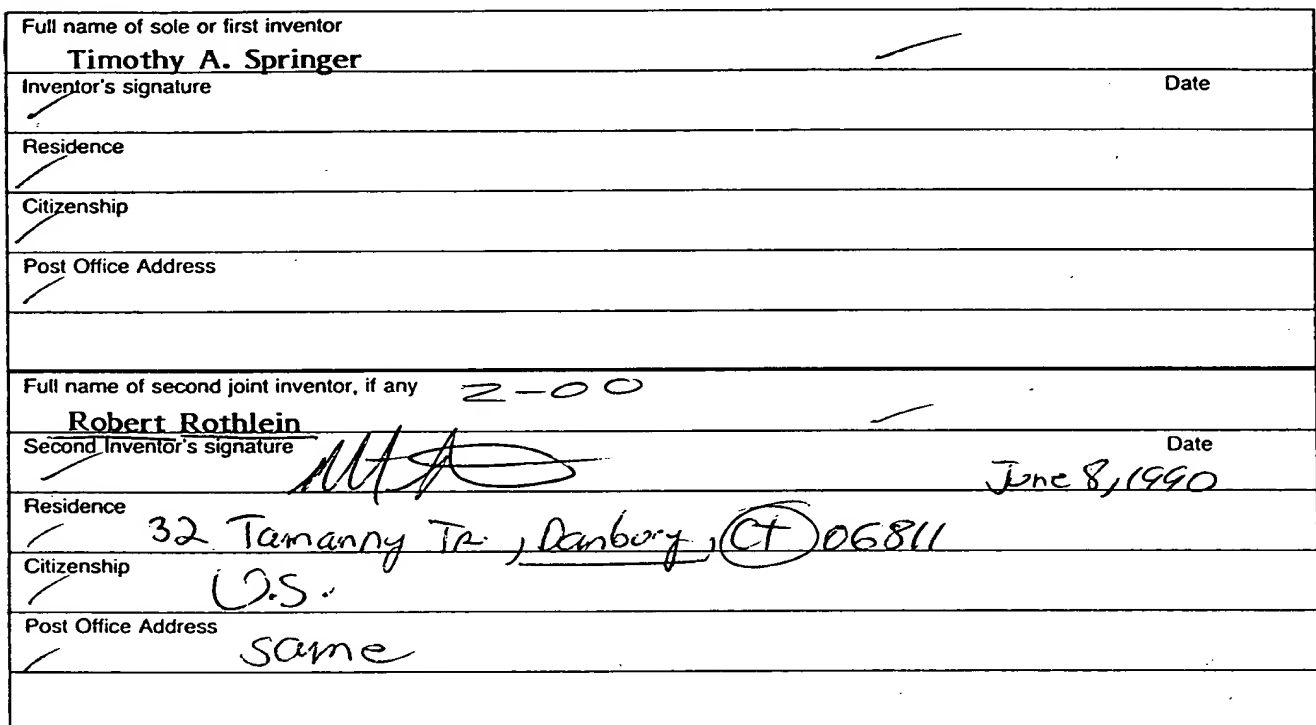 Full name of sole or first inventor
Timothy A. Springer
Inventor's signature Date
Residence
Citizenship
Post Office Address
Full name of second joint inventor, if any 2-00
Robert Rothlein
Second Inventor's signature Date
June 8, 1990
Residence
32 Tamanny Tr., Danbury, CT 06811
Citizenship
U.S.
Post Office Address
same